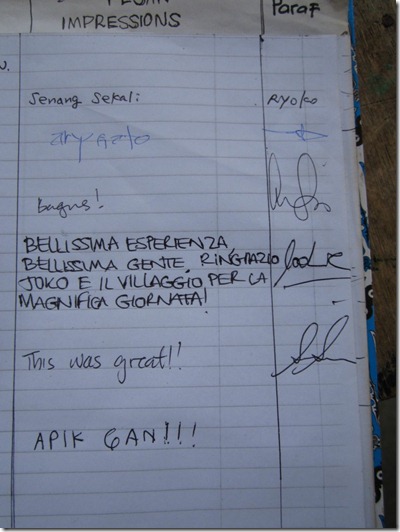 IMPRESSIONS
Paraf
Senang Sekali
Ryoko
Bagus!
BELLISSIMA ESPERIENZA,
BELLISSIMA GENTE, RINGRAZIO
JOKO E IL VILLAGGIO PER LA
MAGNIFICA GIORNATA!
This was great!!
APIK GAN!!!